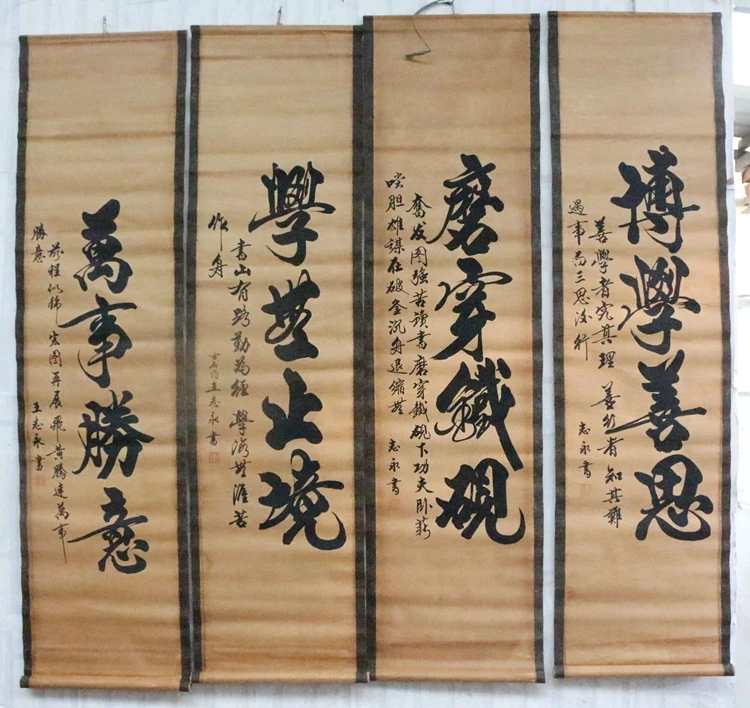 博學善思
善學者究其理 善行者知其難
遇事而三思後行
志永書
磨穿鐵硯
奮发图強苦讀書磨穿鐵硯下功夫卧薪
嘗胆雄謀在破釜沉舟退縮無
志永書
學無止境
書山有路勤為徑 學海無涯苦
作舟
王志永書
萬事勝意
前程似錦 宏图再展飛黄騰達萬事
勝意
王志永書